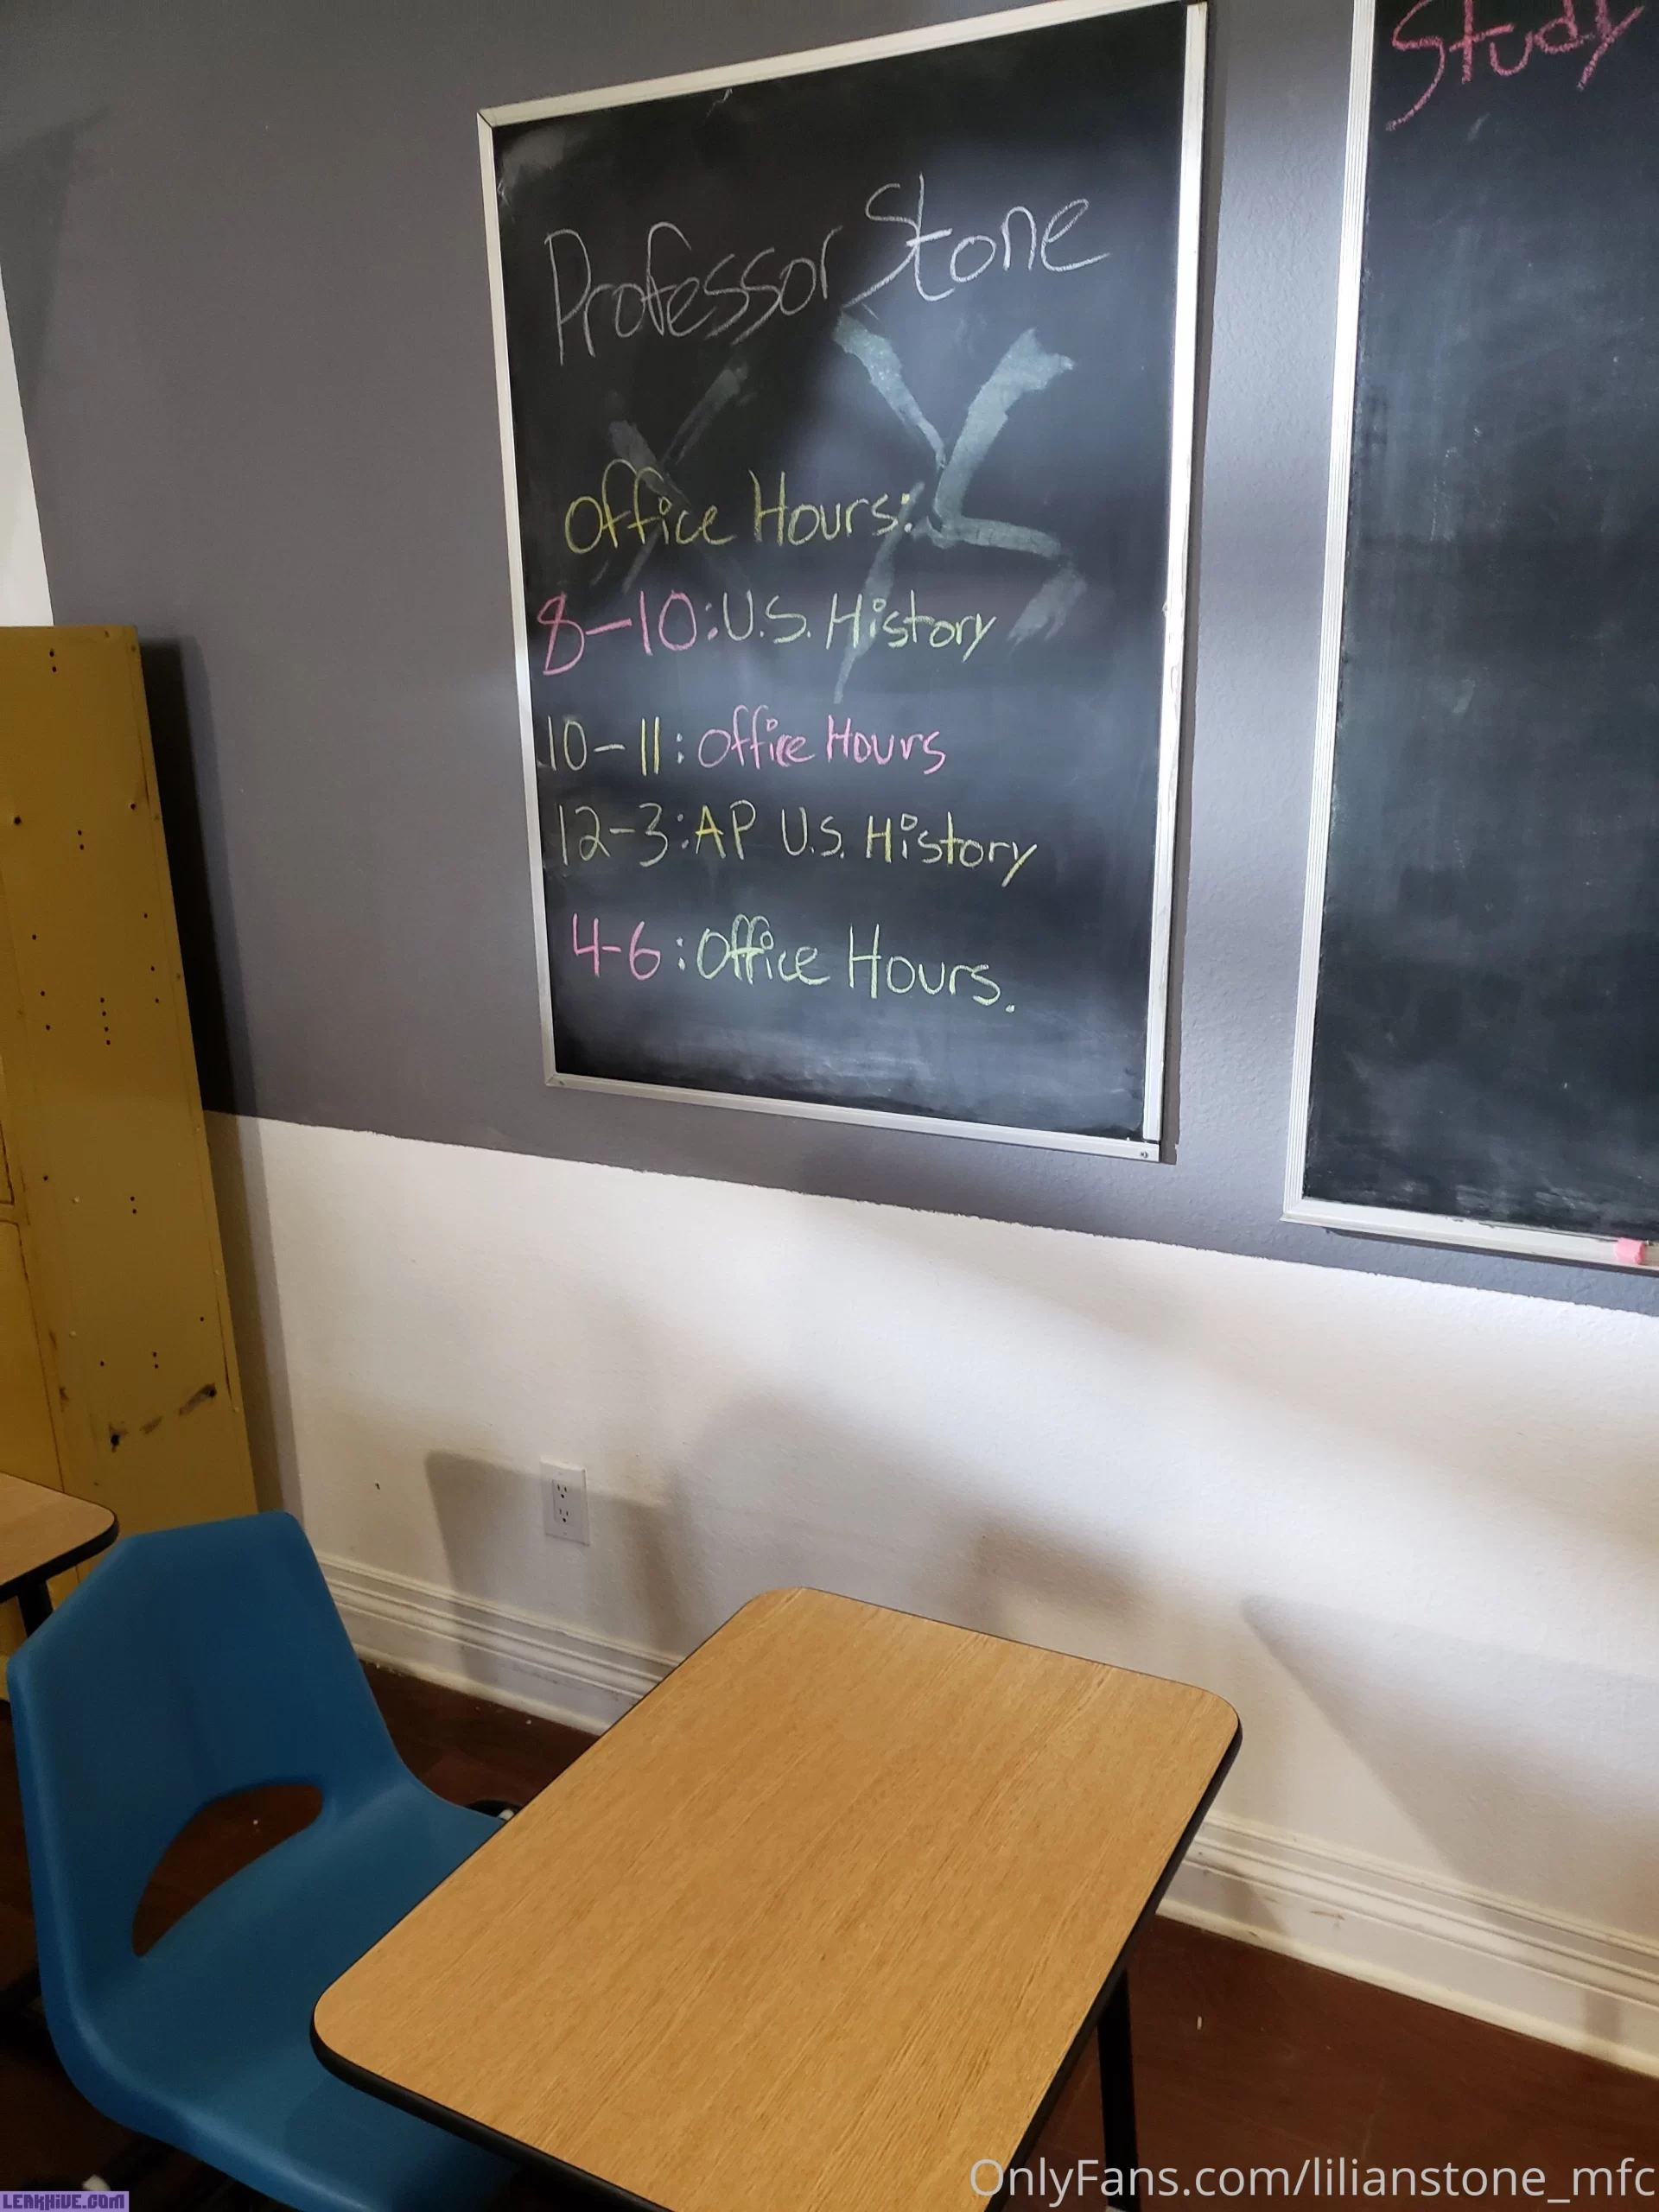 Study
Professor Stone
Office Hours:
8-10: U.S. History
10-11: Office Hours
12-3: AP U.S. History
4-6: Office Hours.
OnlyFans.com/lilianstone_mfc
LEAKHIVE.COM